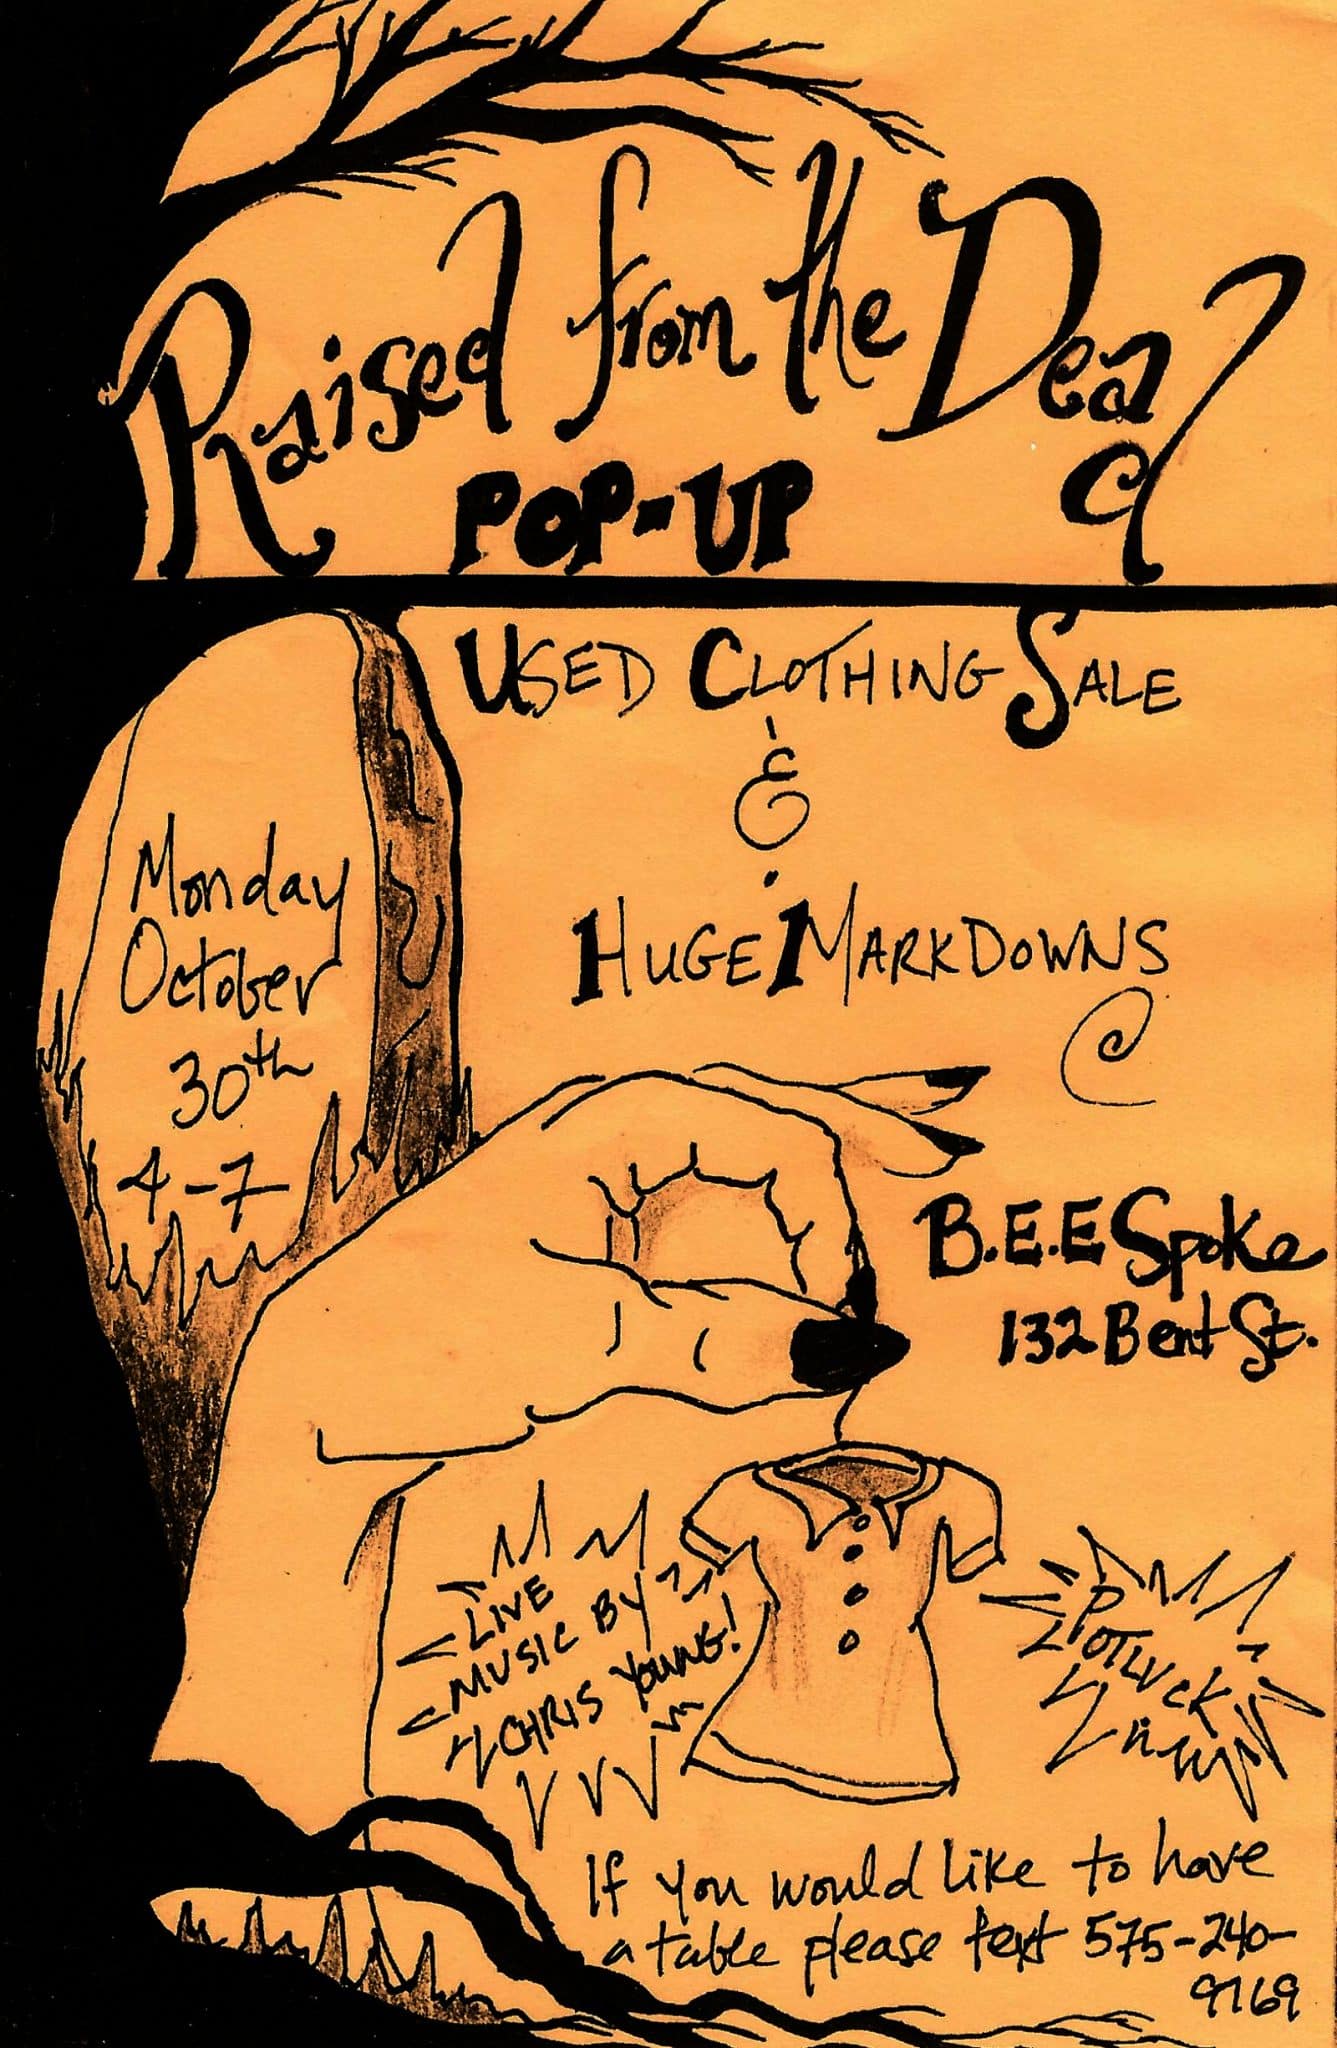 Raised from the Dead
POP-UP
USED CLOTHING SALE
&
HUGE MARKDOWNS
Monday
October
30th
4-7
B.E.E Spoke
132 Bent St.
LIVE
MUSIC BY
CHRIS YOUNG!
POTLUCK
If you would like to have
a table please text 575-240-
9769